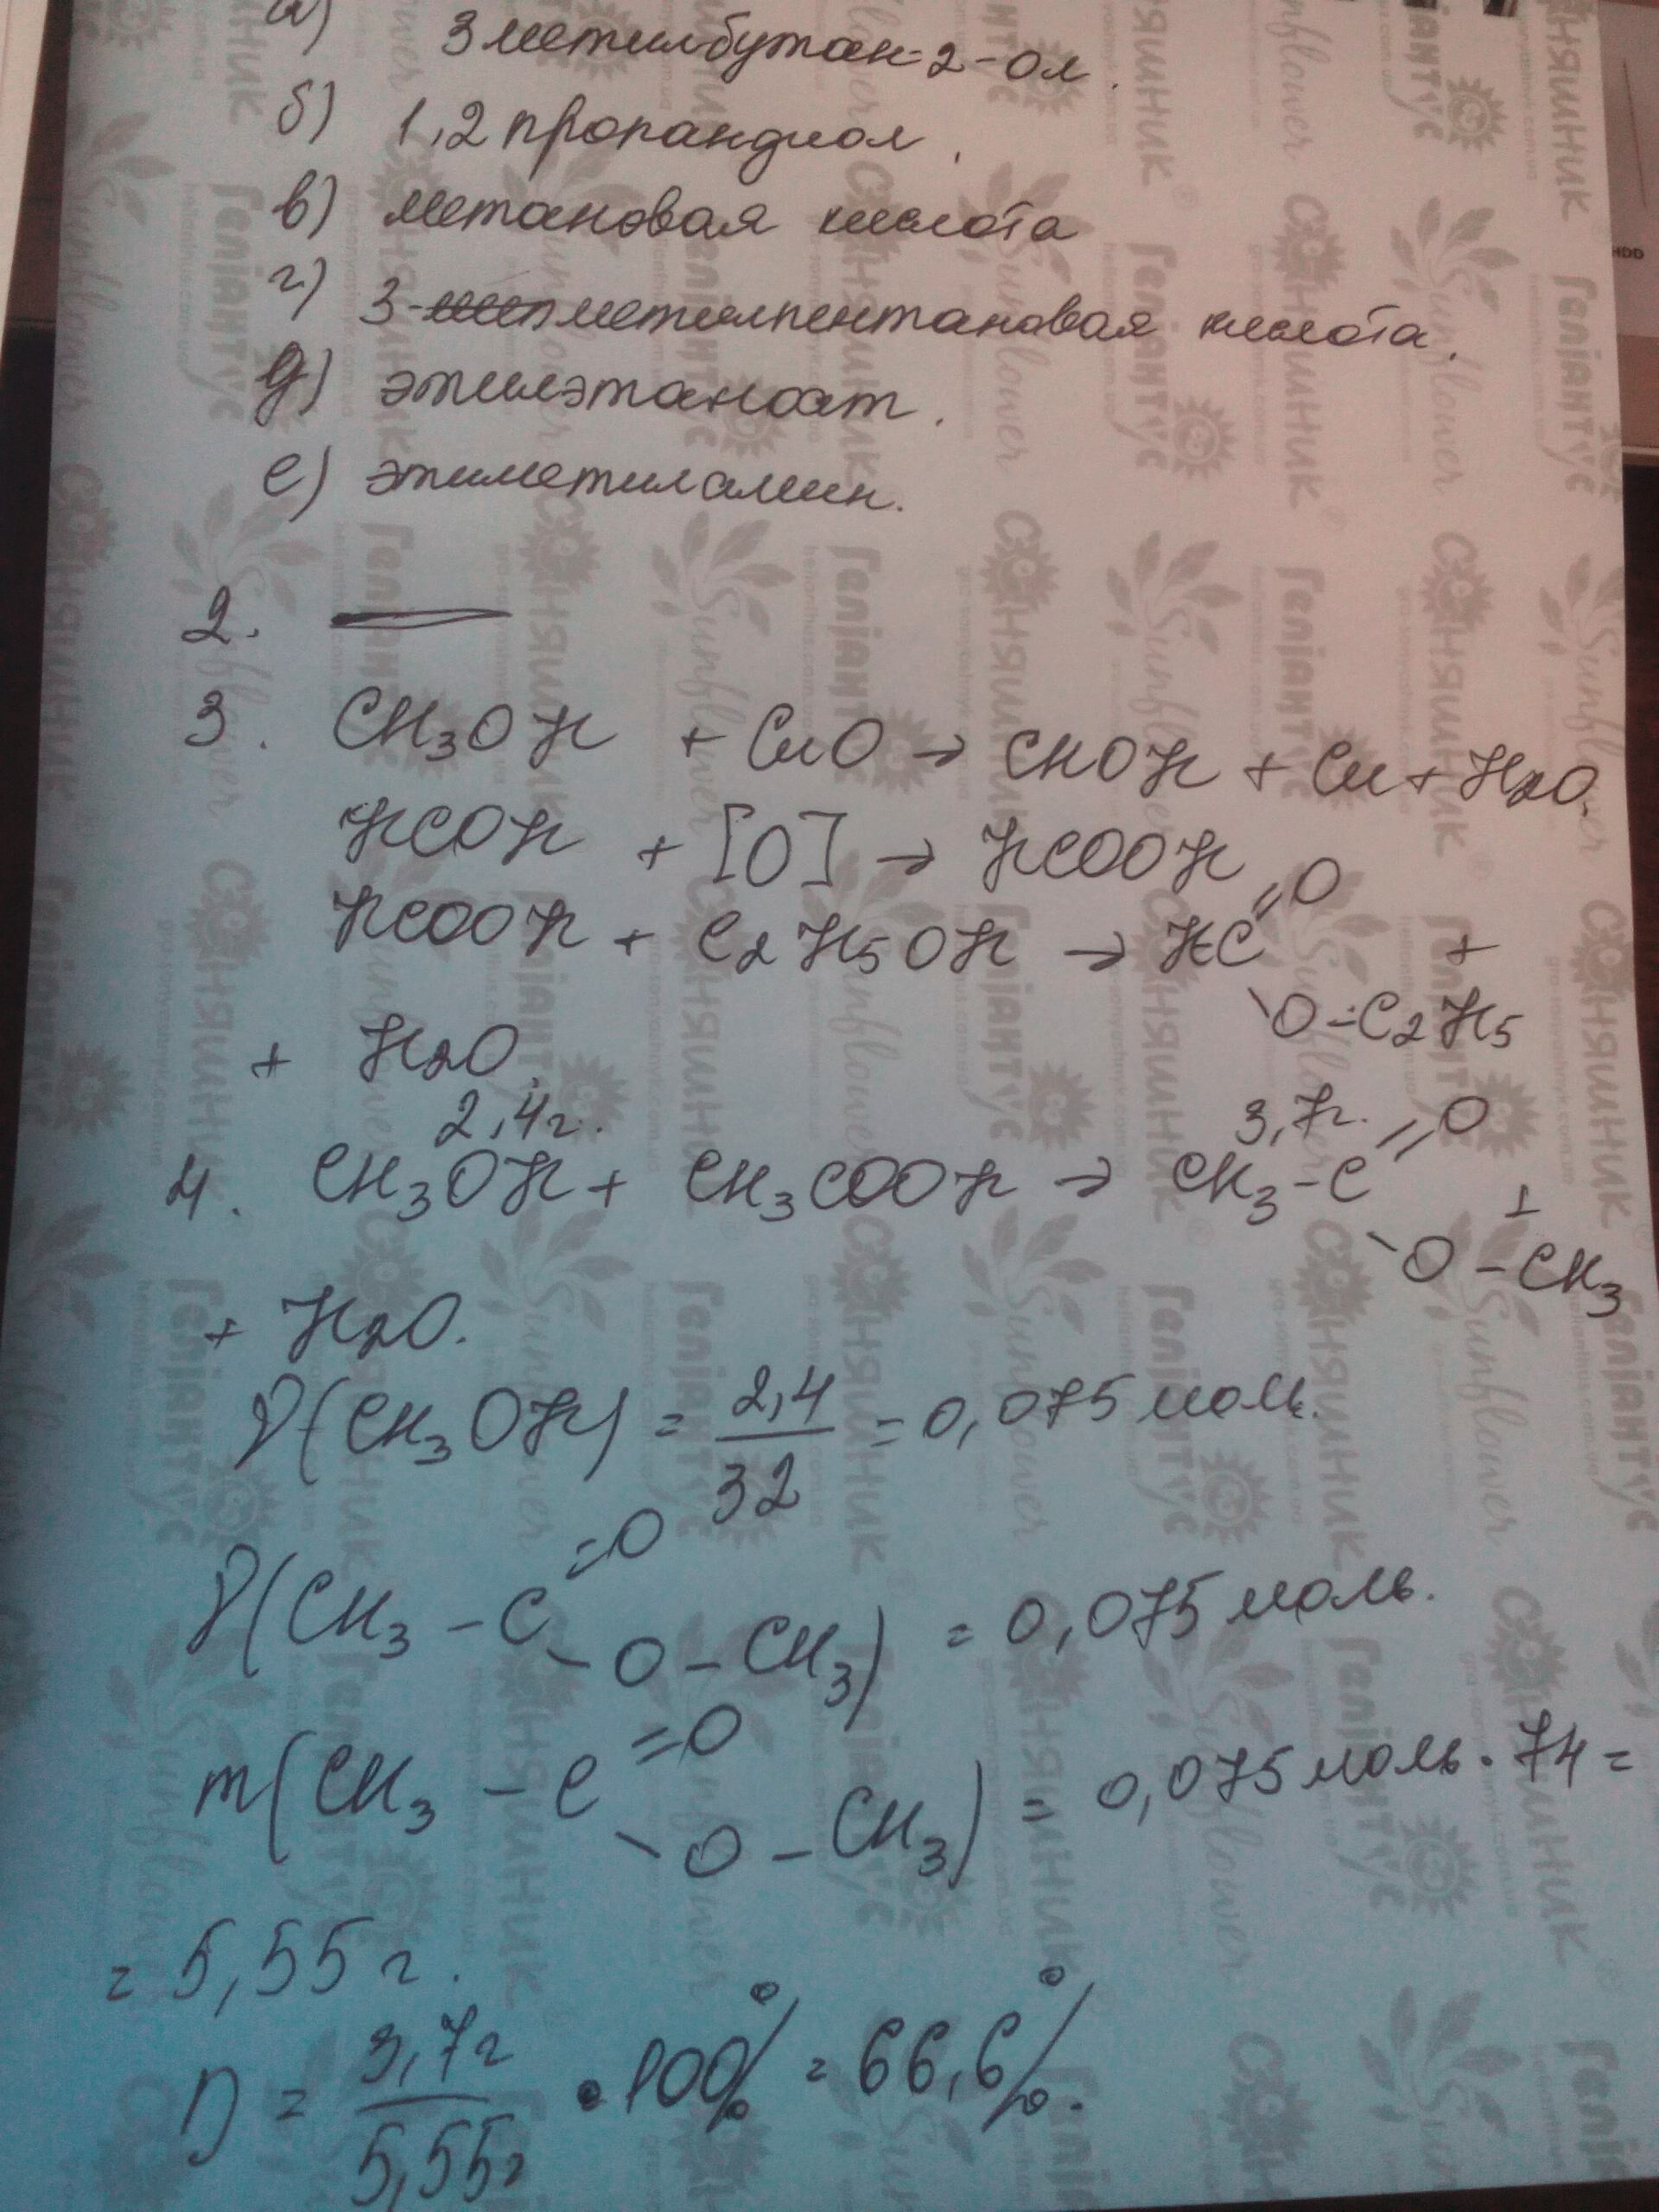 а) 3 метилбутан-2-ол.
б) 1,2 пропандиол.
в) метановая кислота
г) 3-метилпентановая кислота.
д) этилэтаноат.
е) этилметиламин.
2.
3. CH₃OH + CuO → CHOH + Cu + H₂O.
HCOH + [O] → HCOOH
HCOOH + C₂H₅OH → HC =O -O-C₂H₅ +
+ H₂O.
2,4г. 3,7г.
4. CH₃OH + CH₃COOH → CH₃-C =O -O-CH₃ +
+ H₂O.
ν(CH₃OH) = 2,4/32 = 0,075 моль.
ν(CH₃-C =O -O-CH₃) = 0,075 моль.
m(CH₃-C =O -O-CH₃) = 0,075 моль · 74 =
= 5,55 г.
η = 3,7г/5,55г · 100% = 66,6%.
Соняшник
Геліантус
Sunflower
HDD